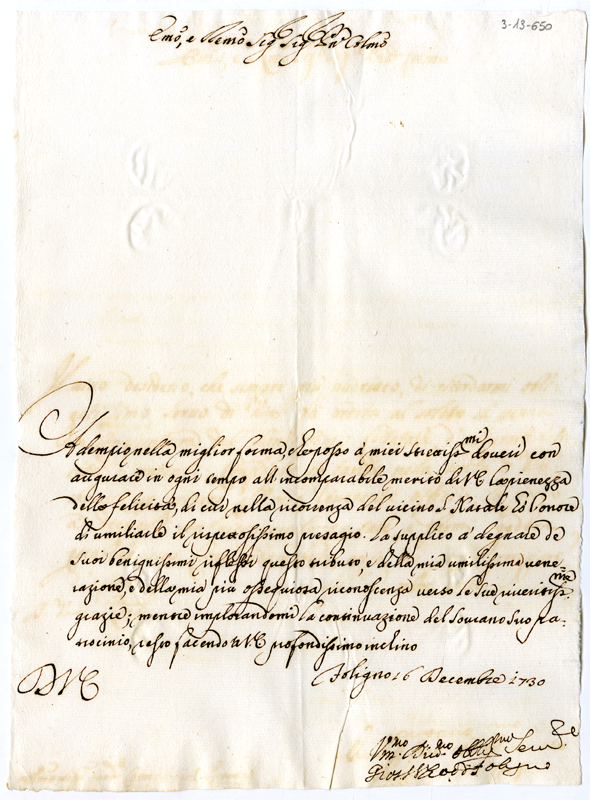 3-13-650
Emo, e Remo Sig Sig Pne Colmo
Adempio nella miglior forma, che posso à miei strettissmi doveri con
augurare in ogni tempo all'incomparabile merito di VE la pienezza
delle felicità, di cui nella ricorrenza del vicino S Natale hò l'onore
di umiliarle il rispettosissimo presagio. La supplico à degnare de
suoi benignissimi riflessi questo tributo, e della mia umilissima vene=
razione, e della mia più ossequiosa riconoscenza verso le sue riveritissme
grazie; mentre implorandomi la continuazione del Sovrano Suo pa=
trocinio, resto facendo à VE profondissimo inchino
DVE
Foligno 16 Decembre 1730
Vmo Divmo Obblmo Serv
Foligno